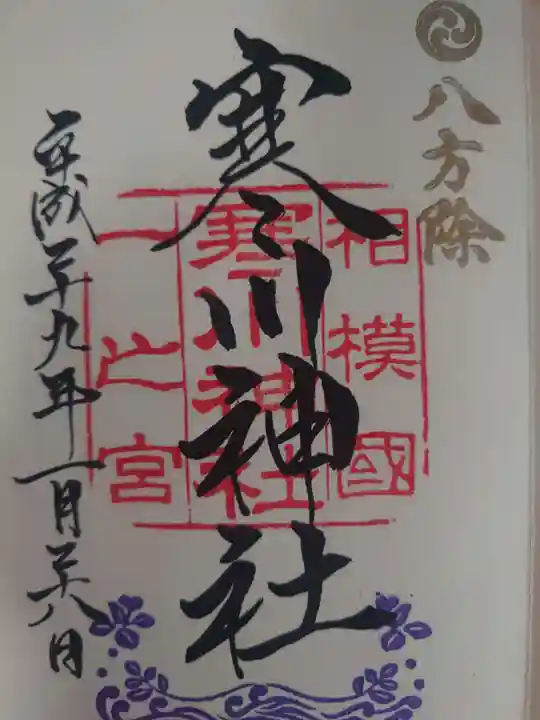 八方除
相模國
寒川神社
一之宮
寒川神社
平成二十九年一月二十八日